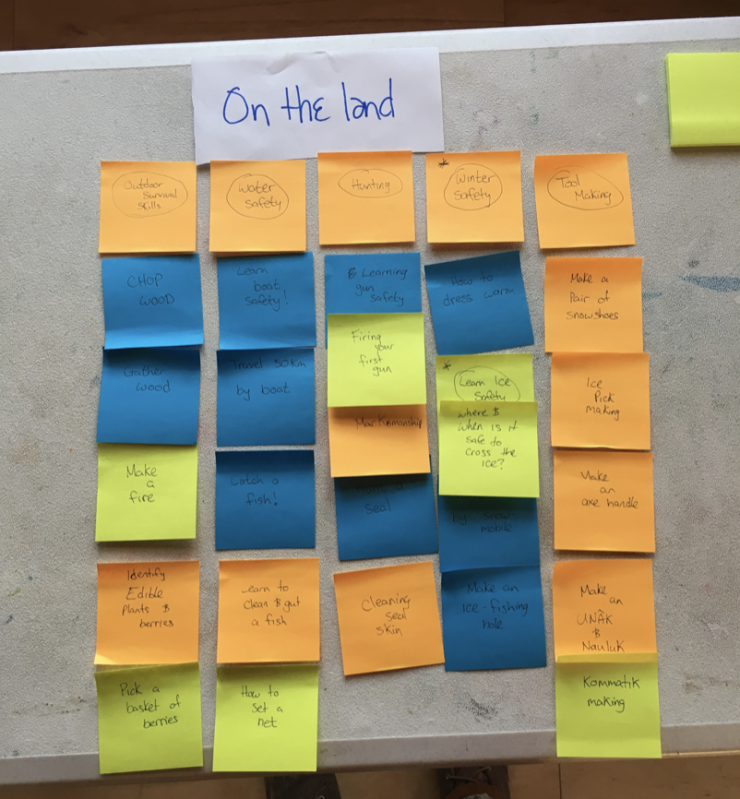 On the land
Outdoor
Survival
Skills
Water
Safety
Hunting
*
Winter
Safety
Tool
Making
CHOP
WOOD
Gather
wood
Make
a
fire
Identify
Edible
Plants &
berries
Pick a
basket of
berries
Learn
boat
Safety!
Travel 50 km
by boat
Catch a
fish!
Learn to
clean & gut
a fish
How to
Set a
net
& Learning
gun
safety
Firing
your
first
gun
Marksmanship
a
Seal
Cleaning
seal
skin
How to
dress warm
*
Learn Ice
Safety
where &
when is it
safe to
cross the
ice?
by Snow
Mobile
Make an
Ice-fishing
hole
Make a
Pair of
Snowshoes
Ice
Pick
Making
Make
an
axe handle
Make
an
UNÂK
&
Nauluk
Kommatik
making